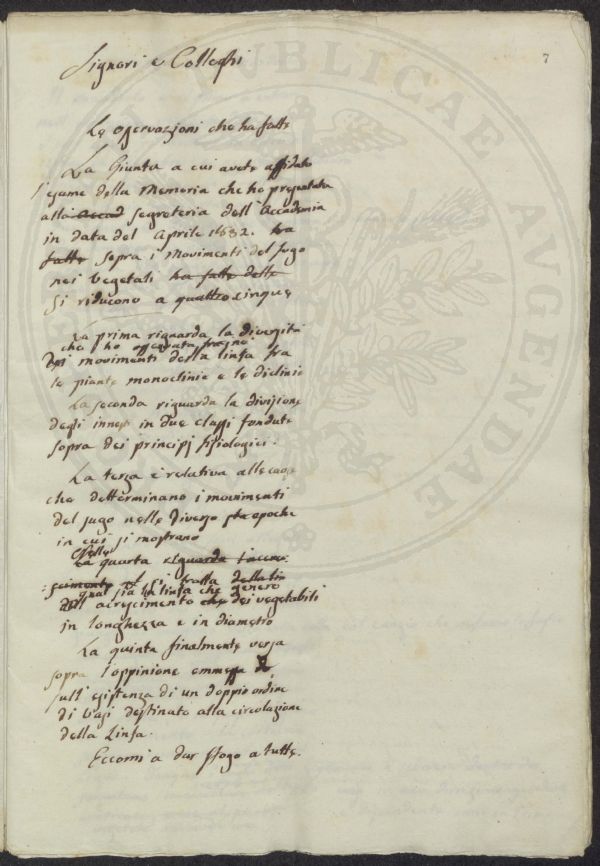 7
Signori e Colleghi
Le osservazioni che ha fatte
La Giunta a cui avete affidato
l'esame della Memoria che ho presentata
alla Accad segreteria dell'Accademia
in data del Aprile 1832. ha
fatte sopra i movimenti del sugo
nei vegetali ha fatte delle
si riducono a quattro cinque
La prima riguarda la diversità
che ho osservata fra
dei movimenti della linfa fra
le piante monoclinie e le diclinie
La seconda riguarda la divisione
degli innesti in due classi fondate
sopra dei principj fisiologici.
La terza è relativa alle cause
che detterminano i movimenti
del sugo nelle diverse epoche
in cui si mostrano
Nella
La quarta riguarda l'accre
scimento si tratta della lin
qual sia la linfa che genera
dell' acrescimento che dei vegetabili
in longhezza e in diametro
La quinta finalmente versa
sopra l'oppinione emmessa
sull'esistenza di un doppio ordine
di vasi destinato alla circolazione
della Linfa.
Eccomi a dar sfogo a tutte.
PUBLICAE AUGENDAE